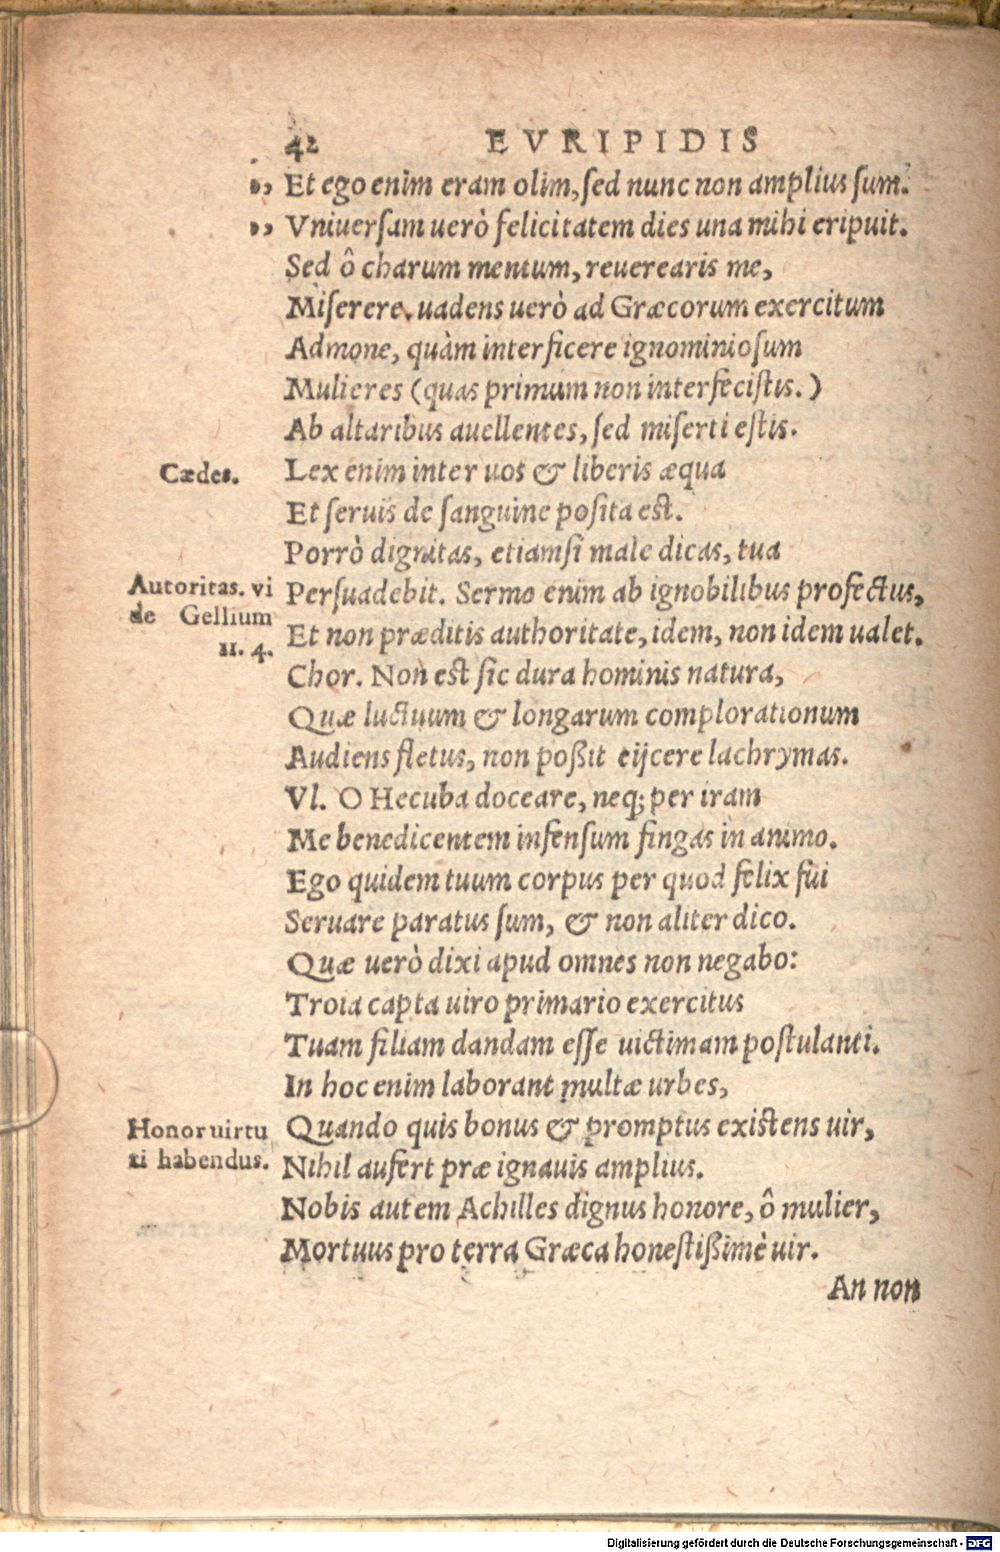 42 EVRIPIDIS
„ Et ego enim eram olim, sed nunc non amplius sum.
„ Vniuersam uerò felicitatem dies una mihi eripuit.
Sed ô charum mentum, reuerearis me,
Miserere, uadens uerò ad Græcorum exercitum
Admone, quàm interficere ignominiosum
Mulieres (quas primum non interfecistis.)
Ab altaribus auellentes, sed miserti estis.
Cædes. Lex enim inter uos & liberis æqua
Et seruis de sanguine posita est.
Porrò dignitas, etiamsi male dicas, tua
Autoritas. vi Persuadebit. Sermo enim ab ignobilibus profectus,
de Gellium Et non præditis authoritate, idem, non idem ualet.
11. 4.
Chor. Non est sic dura hominis natura,
Quæ luctuum & longarum complorationum
Audiens fletus, non poßit eijcere lachrymas.
Vl. O Hecuba doceare, neq; per iram
Me benedicentem infensum fingas in animo.
Ego quidem tuum corpus per quod felix fui
Seruare paratus sum, & non aliter dico.
Quæ uerò dixi apud omnes non negabo:
Troia capta uiro primario exercitus
Tuam filiam dandam esse uictimam postulanti.
In hoc enim laborant multæ urbes,
Honor uirtu Quando quis bonus & promptus existens uir,
ti habendus. Nihil aufert præ ignauis amplius.
Nobis autem Achilles dignus honore, ô mulier,
Mortuus pro terra Græca honestißimè uir.
An non
Digitalisierung gefördert durch die Deutsche Forschungsgemeinschaft - DFG